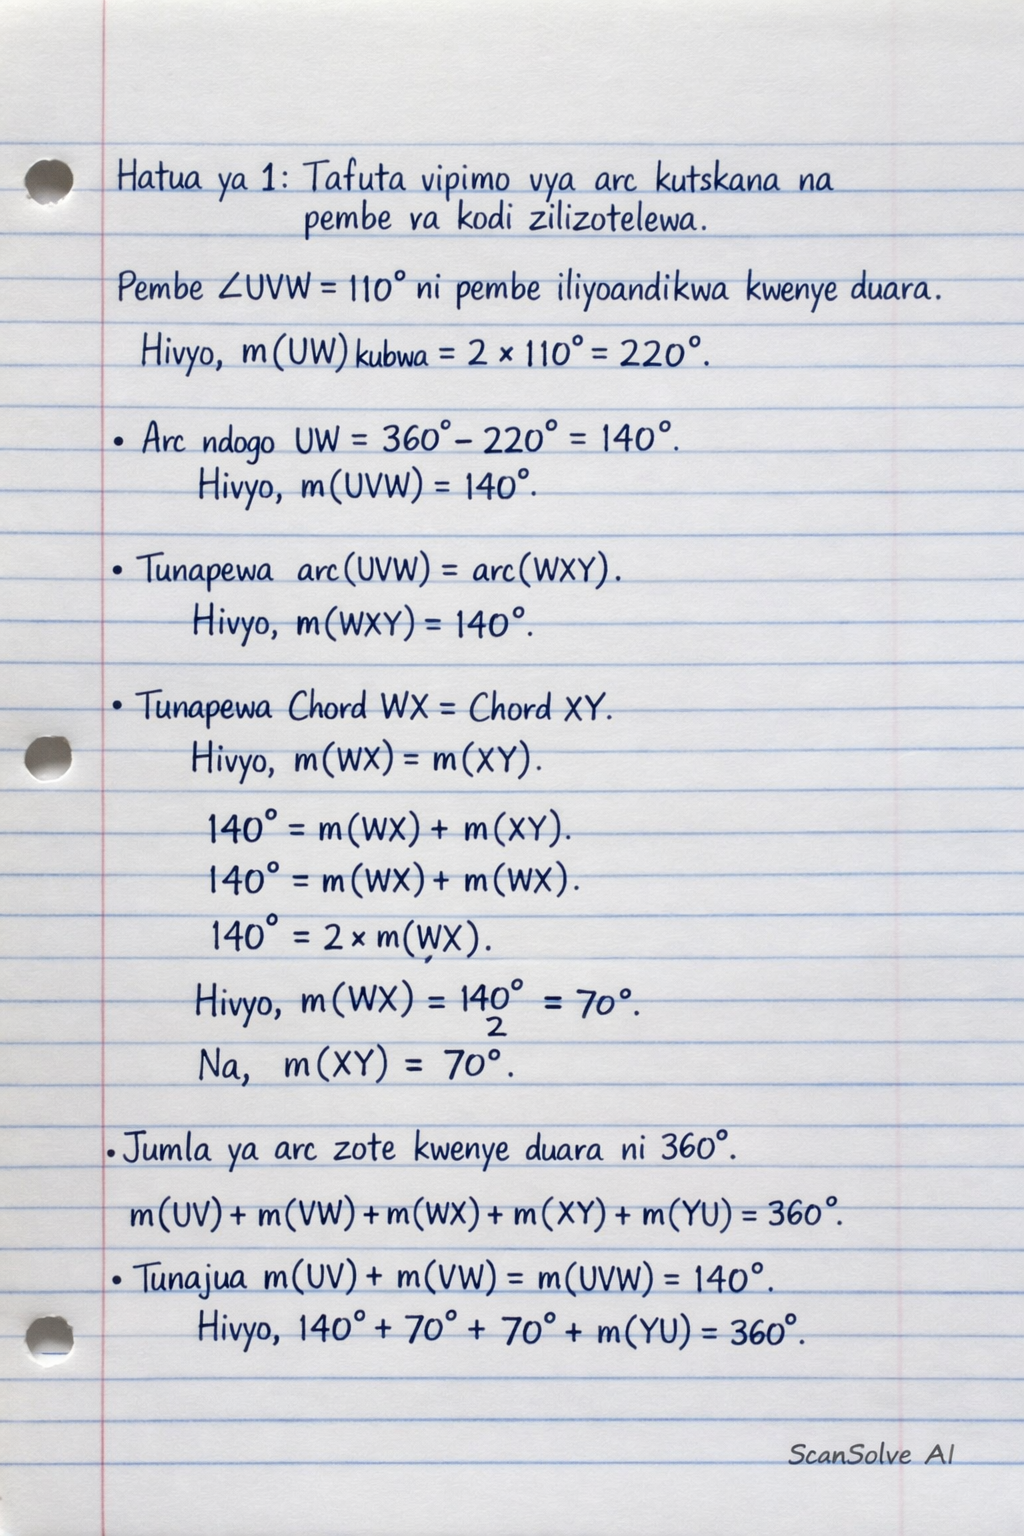 Hatua ya 1: Tafuta vipimo vya arc kutskana na
pembe va kodi zilizotelewa.
Pembe ∠UVW = 110° ni pembe iliyoandikwa kwenye duara.
Hivyo, m(UW) kubwa = 2 × 110° = 220°.
• Arc ndogo UW = 360° - 220° = 140°.
Hivyo, m(UVW) = 140°.
• Tunapewa arc(UVW) = arc(WXY).
Hivyo, m(WXY) = 140°.
• Tunapewa Chord WX = Chord XY.
Hivyo, m(WX) = m(XY).
140° = m(WX) + m(XY).
140° = m(WX) + m(WX).
140° = 2 × m(WX).
Hivyo, m(WX) = 140° = 70°.
2
Na, m(XY) = 70°.
• Jumla ya arc zote kwenye duara ni 360°.
m(UV) + m(VW) + m(WX) + m(XY) + m(YU) = 360°.
• Tunajua m(UV) + m(VW) = m(UVW) = 140°.
Hivyo, 140° + 70° + 70° + m(YU) = 360°.
ScanSolve AI